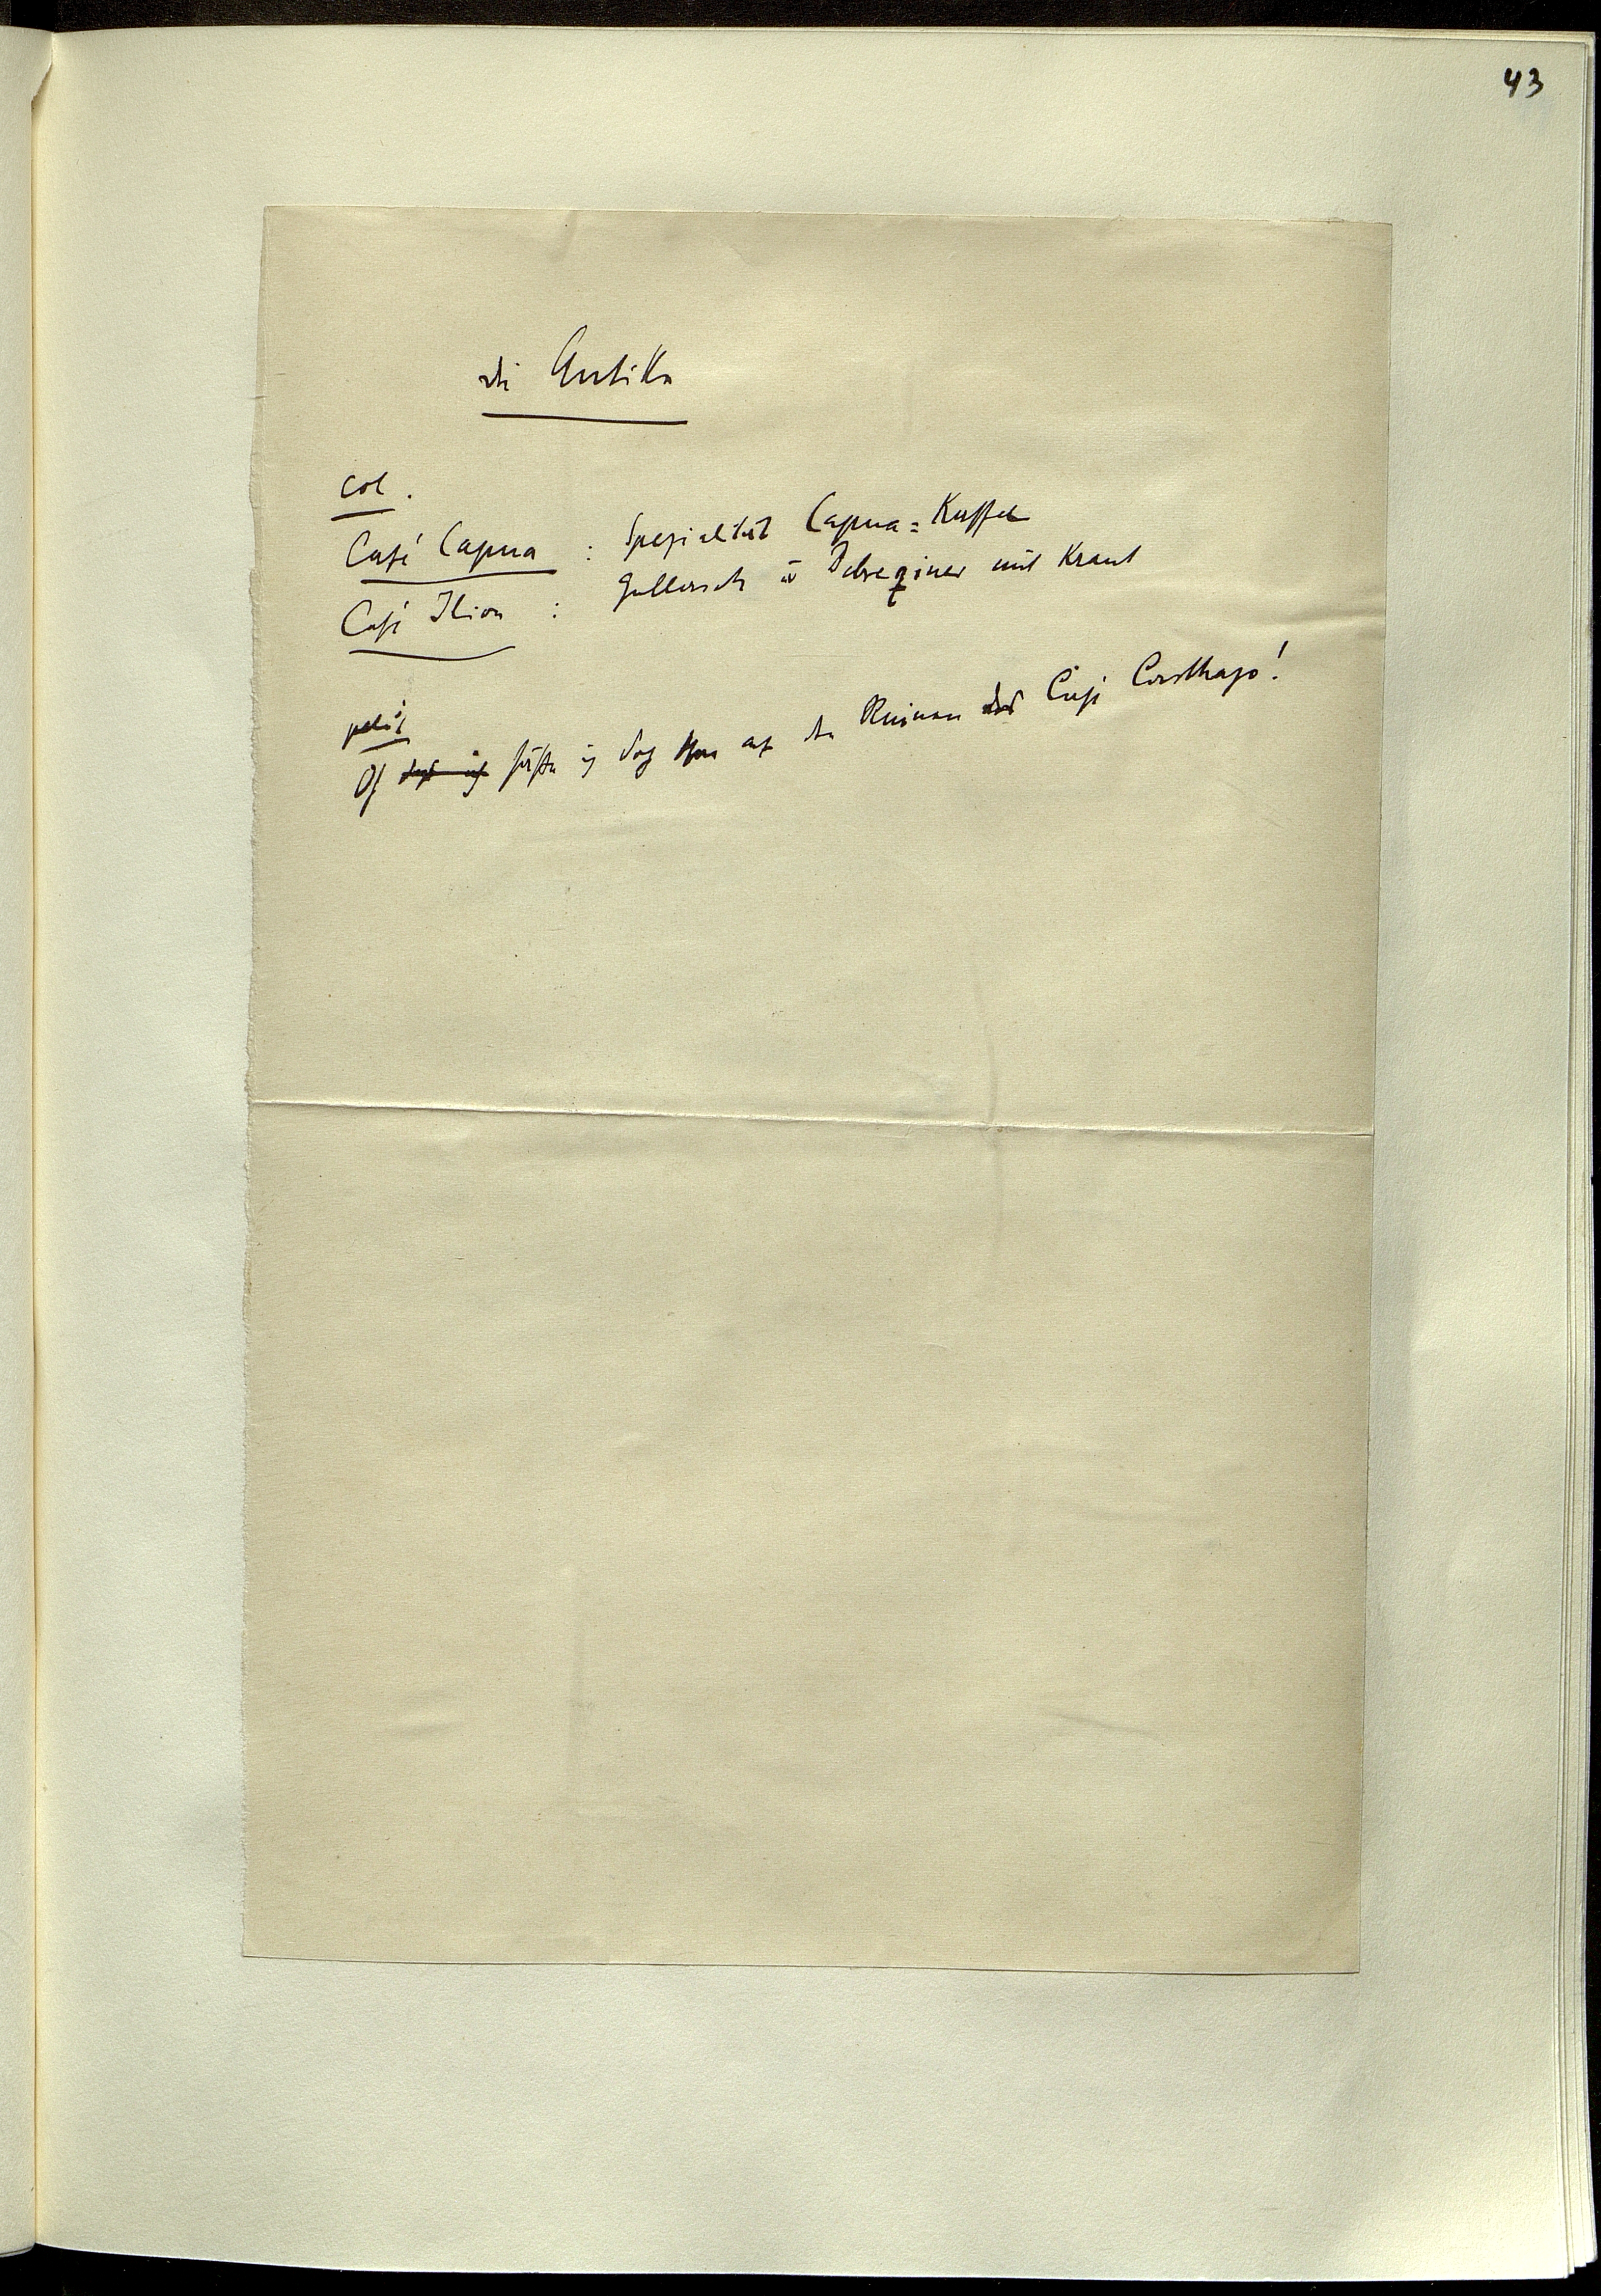 43
die Antike
col.
Café Capua : Spezialität Capua=Kaffee
Café Ilion : Gollasch u Debreziner mit Kraut
Oh säße ich doch nur auf den Ruinen des Café Carthago!